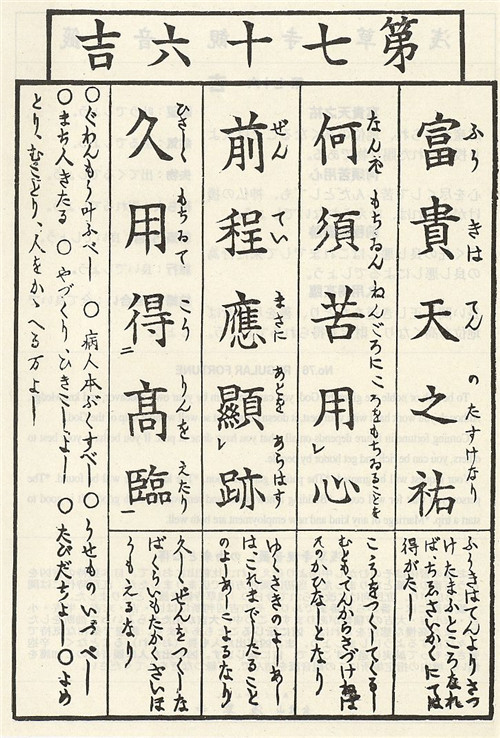 第七十六吉
ふうきはてんのたすけなり
富貴天之祐
ふうきはてんよりさづ
けたまふところなれ
ばちゑざいくにては
得がたし
なんぞもちゐん ねんごろにこころをもちゐることを
何須苦用レ心
こころをつくしてくるし
むともてんからさづけねば
そのかひなしとなり
ぜんていまさにあとをあらはす
前程應顯レ跡
ゆくさきのよしあし
はこれまでしたること
のしあとによるなり
ひさしくもちゐてこうりんをえたり
久用得二髙臨一
久しくぜんを
ばいつもたかき
うもえるなり
〇ぐわんもう叶ふべし 〇病人本ぷくすべし 〇うせものいづべし
〇まち人きたる 〇やづくりひきこしよし 〇たびだちよし 〇よめ
とり、むことり、人をかゝへる万よし